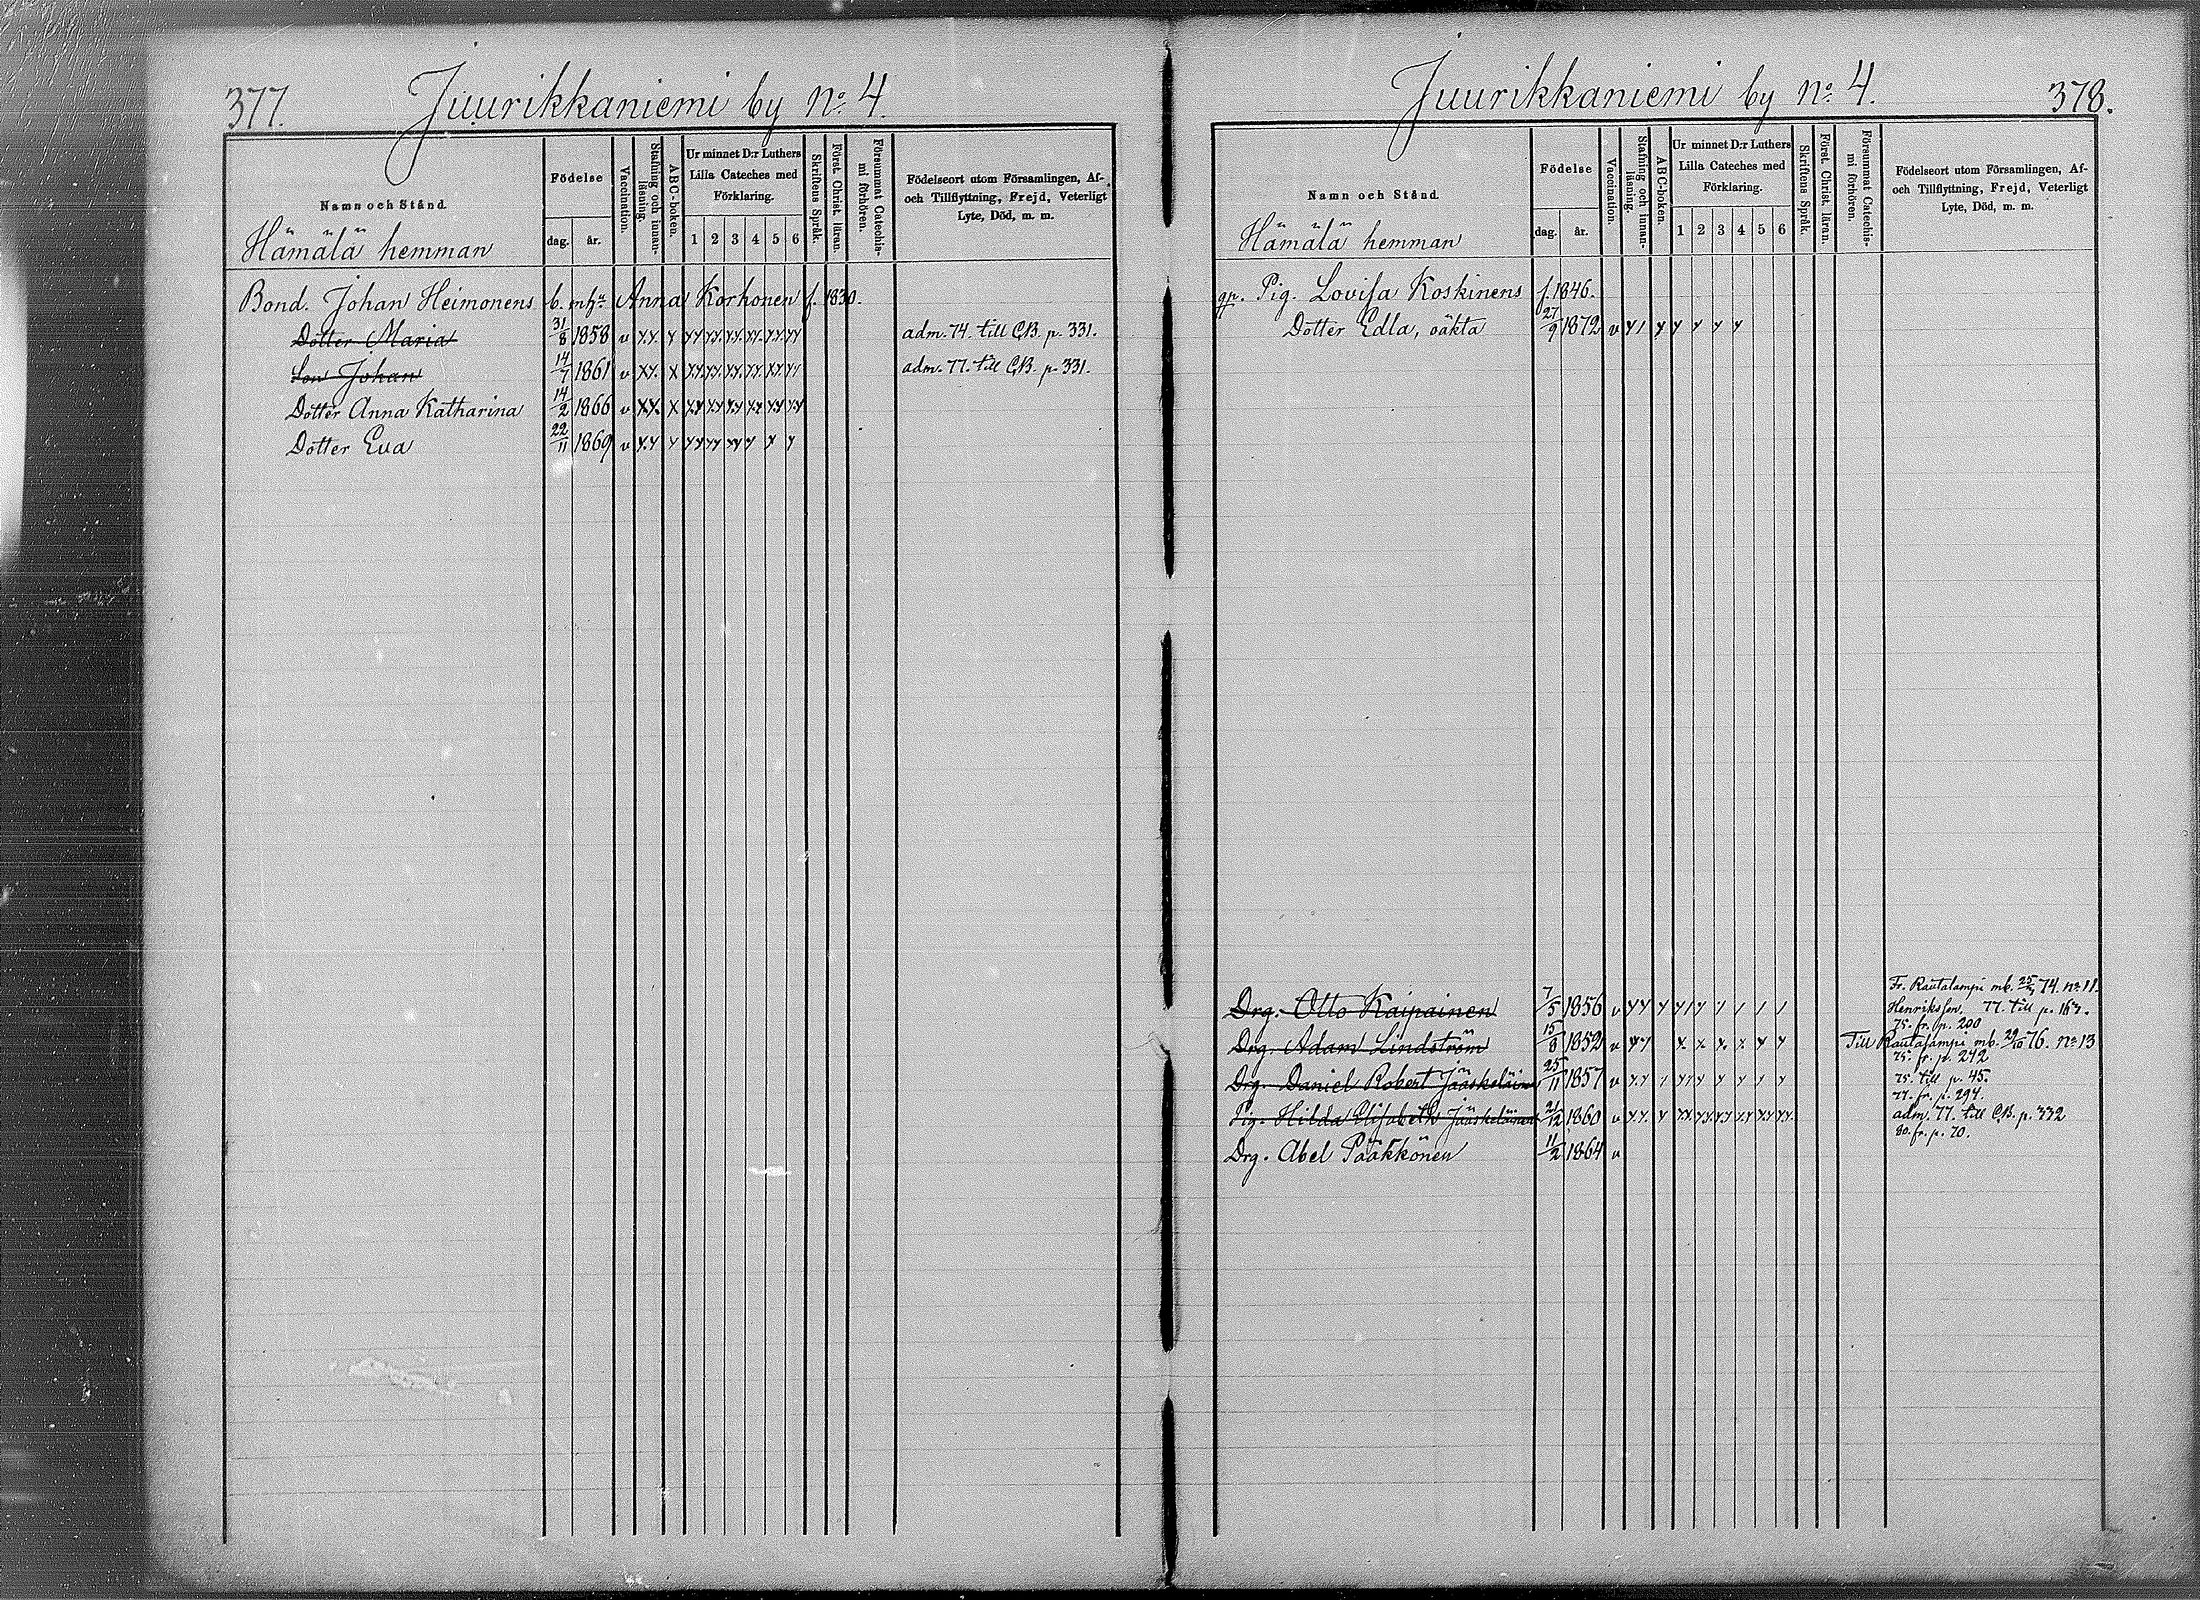 377.
Juurikkaniemi by no. 4.
Namn och Stånd.
Födelse
dag.
år.
Vaccination.
Stafning och innanläsning.
ABC-boken.
Ur minnet D:r Luthers
Lilla Cateches med
Förklaring.
1 2 3 4 5 6
Skriftens Språk.
Först. Christ. läran.
Försummat Catechismi förhören.
Födelseort utom Församlingen, Af-
och Tillflyttning, Frejd, Veterligt
Lyte, Död, m. m.
Hämälä hemman
Bond. Johan Heimonens b. m. h:u Anna Korhonen f. 1830.
Dotter Maria 31/8 1858 v adm. 74. till CB. p. 331.
Son Johan 14/7 1861 v adm. 77. till CB. p. 331.
Dotter Anna Katharina 14/2 1866 v
Dotter Eva 22/11 1869 v
Juurikkaniemi by no. 4.
378.
Namn och Stånd.
Födelse
dag.
år.
Vaccination.
Stafning och innanläsning.
ABC-boken.
Ur minnet D:r Luthers
Lilla Cateches med
Förklaring.
1 2 3 4 5 6
Skriftens Språk.
Först. Christ. läran.
Försummat Catechismi förhören.
Födelseort utom Församlingen, Af-
och Tillflyttning, Frejd, Veterligt
Lyte, Död, m. m.
Hämälä hemman
gp. Pig. Lovisa Koskinens f. 1846.
Dotter Edla, oäkta 27/9 1872 v
Fr. Rautalampi mb. 74. no 11.
Drg. Otto Kaipainen 7/5 1856 v Henriksson. 77. till p.
75. fr. p. 200
Drg. Adam Lindström 15/8 1852 v Till Rautalampi mb. 76. no 13
75. fr. p. 242
Drg. Daniel Robert Jääskeläinen 25/11 1857 v 75. till p. 45.
77. fr. p. 294.
Pig. Hilda Elisabeth Jääskeläinen 21/12 1860 v adm. 77. till CB. p. 332
80. fr. p. 70.
Drg. Abel Pääkkönen 11/2 1864 v